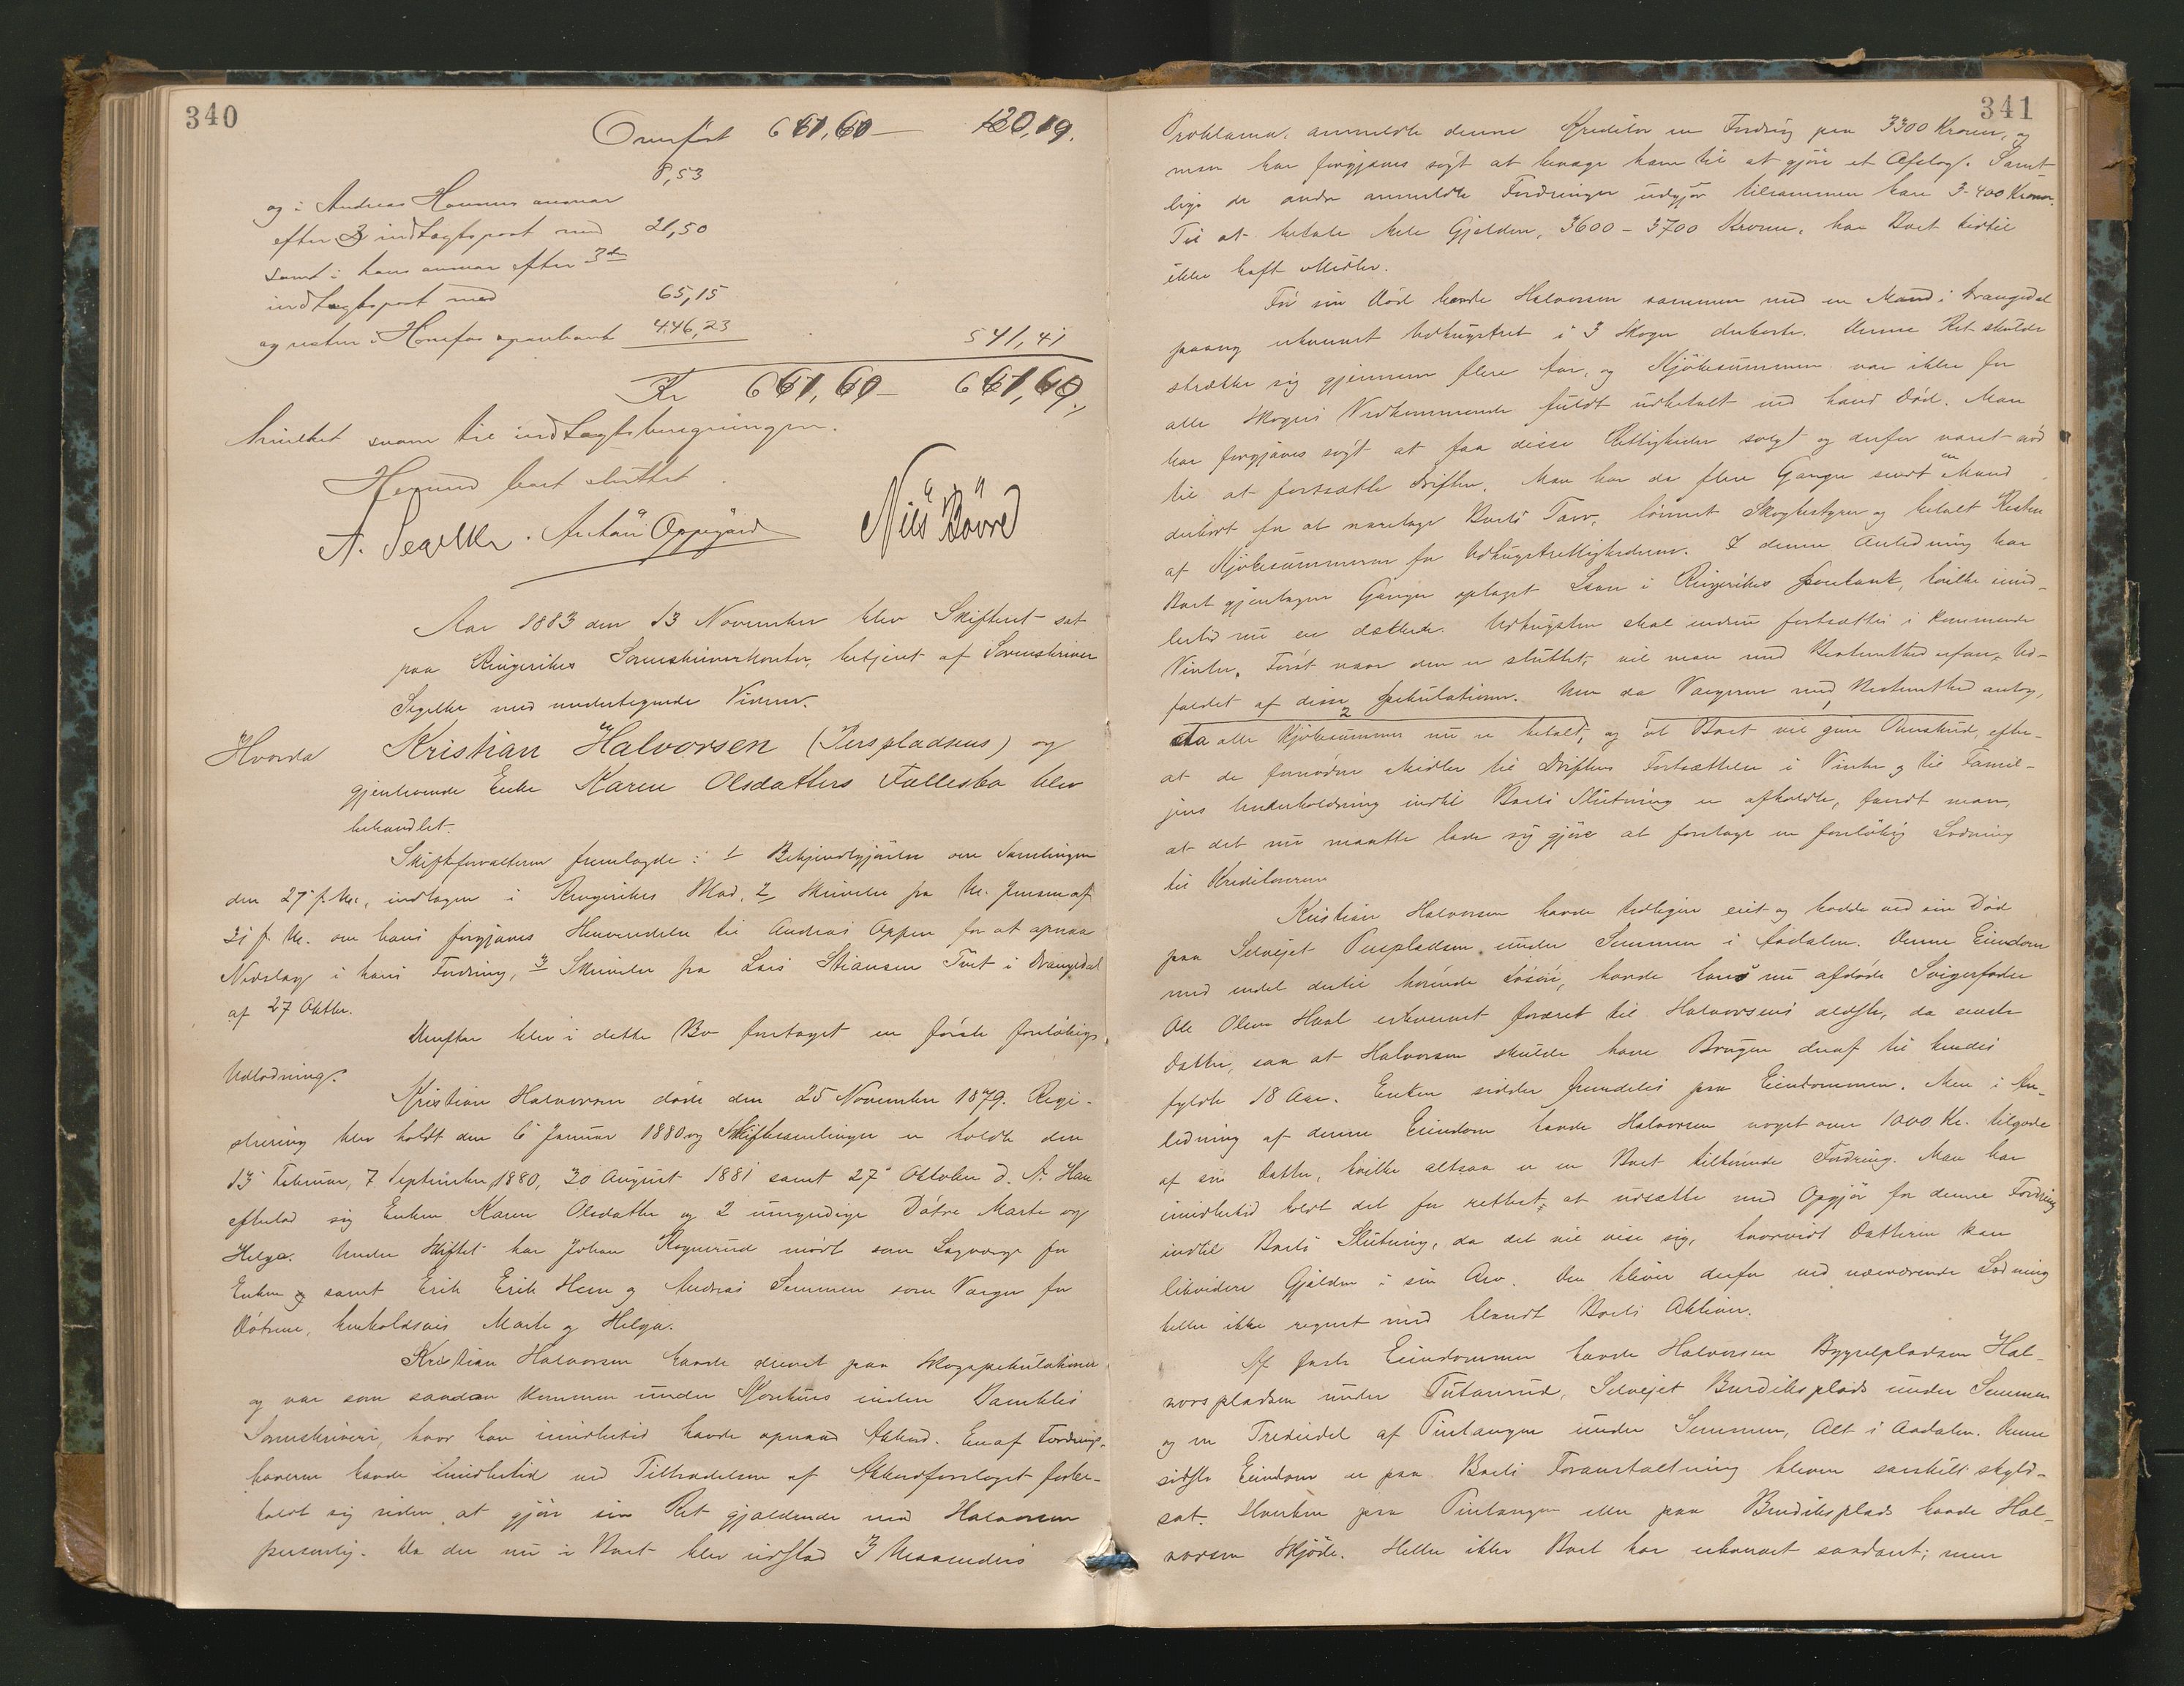 340
Overført 661,60 — 120,19.
8,53
og i Andreas Hovruds ansvar
efter 2 indtægtspost med 21,50
samt i hans ansvar efter 3die
indtægtspost med 65,15
og resten i Hønefos sparebank 446,23 541,41
Kr 661,60 — 661,60
hvilket svarer til indtægtsberegningen.
Hermed boet sluttet.
A. Segelke. Anton Oppegård Nils Bövre
Aar 1883 den 13 November blev Skifteret sat
paa Ringerikes Sorenskriverkontor, betjent af Sorenskriver
Segelke med undertegnede Vidner.
Hvorda Kristian Halvorsen (Perspladsens) og
gjenlevende Enke Karen Olsdatters Fællesbo blev
behandlet.
Skifteforvalteren fremlagde: 1 Bekjendtgjørelse om Samlingen
den 27 f. M., indtagen i Ringerikes Blad, 2 Skrivelse fra Hr. Jensen af
31 f. M. om hans forgjæves Henvendelse til Andreas Oppen for at opnaa
Nedslag i hans Fordring, 3 Skrivelse fra Lars Stiansen Tveit i Drangedal
af 27 Oktbr.
Derefter blev i dette Bo foretaget en første foreløbig
Udlodning.
Kristian Halvorsen døde den 25 November 1879. Regi-
strering blev holdt den 6 Januar 1880 og Skiftesamlinger er holdte den
13 Februar, 7 September 1880, 30 August 1881 samt 27 Oktober d. A. Han
efterlod sig Enken Karen Olsdatter og 2 umyndige Døtre Marte og
Helga. Under Skiftet har Johan Rognerud mødt som Lagværge for
Enken og samt Erik Erik Hem og Andreas Semmen som Værger for
Døtrene, henholdsvis Marte og Helga.
Kristian Halvorsen havde drevet paa Skogspekulationer
og var som saadan kommen under Konkurs inden Bamble
Sorenskriveri, hvor han imidlertid havde opnaaet Akkord. En af Fordrings-
haverne havde imidlertid ved Tiltrædelsen af Akkordforslaget forbe-
holdt sig siden at gjøre sin Ret gjældende mod Halvorsen
personlig. Da der nu i Boet blev udstædt 3 Maaneders
341
Proklama, anmeldte denne Kreditor en Fordring paa 3300 Kroner, og
man har forgjæves søgt at bevæge ham til at gjøre et Afslag. Samt-
lige de andre anmeldte Fordringer udgjør tilsammen kun 3-400 Kroner.
Til at betale hele Gjælden, 3600 – 3700 Kroner, har Boet hidtil
ikke haft Midler.
Før sin Død havde Halvorsen sammen med en Mand i Drangedal
paany erhvervet Udhugstret i 3 Skoger derborte. Denne Ret skulde
strække sig gjennem flere Aar, og Kjøbesummen var ikke for
alle Skoges Vedkommende fuldt udbetalt ved hans Død. Man
har forgjæves søgt at faa disse Rettigheder solgt og derfor været nød
til at fortsætte Driften. Man har da flere Gange sendt en Mand
derbort for at varetage Boets Tarv, lønnet Skogbestyrer og betalt Resten
af Kjøbesummerne for Udhugstrettighederne. I denne Anledning har
Boet gjentagne Gange optaget Laan i Ringerikes Sparebank, hvilke imid-
lertid nu er dækkede. Udhugsten skal endnu fortsættes i kommende
Vinter. Først naar den er sluttet, vil man med Bestemthed erfare Ud-
faldet af disse Spekulationer. Men da Værgerne med Bestemthed antog,
da alle Kjøbesummer nu er betalt, og at Boet vil give Overskud, efter-
at de fornødne Midler til Driftens Fortsættelse i Vinter og til Famil-
jens Underholdning indtil Boets Slutning er afholdte, fandt man,
at det nu maatte lade sig gjøre at foretage en foreløbig Lodning
til Kreditorerne
Kristian Halvorsen havde tidligere eiet og bodde ved sin Død
paa Selveiet Perspladsen under Semmen i Aadalen. Denne Eiendom
med endel dertil hørende Løsøre, havde hans nu afdøde Svigerfader
Ole Olsen Haal erhvervet foræret til Halvorsens ældste, da eneste
Datter, saa at Halvorsen skulde have Brugen deraf til hendes
fyldte 18 Aar. Enken sidder fremdeles paa Eiendommen. Men i An-
ledning af denne Eiendom havde Halvorsen noget over 1000 Kr. tilgode
af sin Datter, hvilke altsaa er en Boet tilkommende Fordring. Man har
imidlertid holdt det for rettest, at udsætte med Opgjør for denne Fordring
indtil Boets Slutning, da det vil vise sig, hvorvidt Datteren kan
likvidere Gjælden i sin Arv. Den bliver derfor ved nærværende Lodning
heller ikke regnet med blandt Boets Aktiver.
Af faste Eiendommer havde Halvorsen Bygselpladsen Hal-
vorspladsen under Tutanrud, Selveiet Burdiksplads under Semmen
og en Trediedel af Tuetangen under Semmen, Alt i Aadalen. Denne
sidste Eiendom er paa Boets Foranstaltning bleven særskilt skyld-
sat. Hverken paa Tuetangen eller paa Burdiksplads havde Hal-
vorsen Skjøde. Heller ikke Boet har erhvervet saadant; men